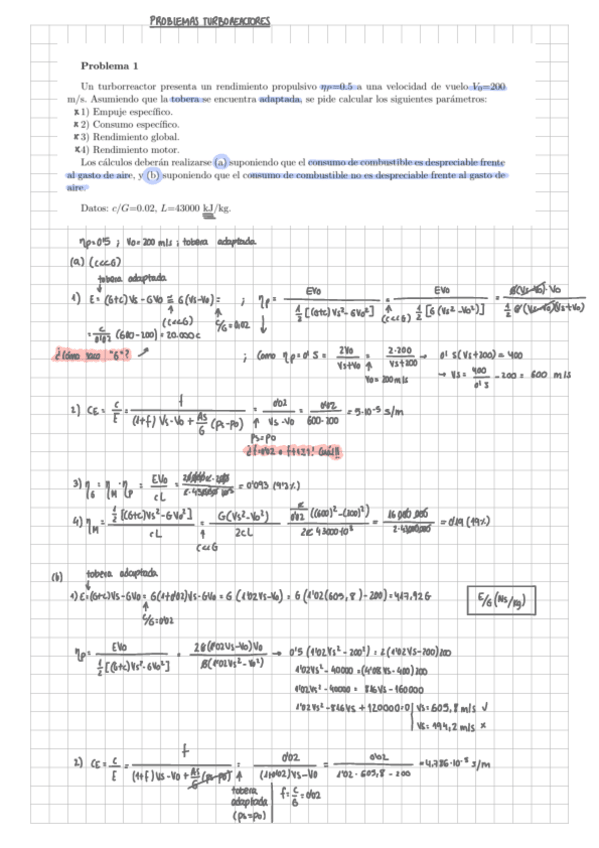 PROBLEMAS TURBOREACTORES
Problema 1
Un turborreactor presenta un rendimiento propulsivo ηP=0.5 a una velocidad de vuelo V0=200
m/s. Asumiendo que la tobera se encuentra adaptada, se pide calcular los siguientes parámetros:
1) Empuje específico.
2) Consumo específico.
3) Rendimiento global.
4) Rendimiento motor.
Los cálculos deberán realizarse (a) suponiendo que el consumo de combustible es despreciable frente
al gasto de aire, y (b) suponiendo que el consumo de combustible no es despreciable frente al gasto de
aire.
Datos: c/G=0.02, L=43000 kJ/kg.
ηp=0'5 ; Vo=200 m/s ; tobera adaptada
(a) (c<<G)
tobera adaptada
1) E=(G+c)Vs-GVo ≅ G(Vs-Vo)= ; ηp= EVo / ½[(G+c)Vs²-GVo²] = EVo / ½[G(Vs²-Vo²)] = G(Vs-Vo)·Vo / ½G(Vs-Vo)(Vs+Vo)
(c<<G) c/G=0,02 (c<<G)
= c/0'02 (600-200)=20.000c
¿Cómo saco "G"? ; Como ηp=0'5= 2Vo/Vs+Vo = 2·200/Vs+200 → 0'5(Vs+200)=400
Vo=200m/s → Vs= 400/0'5 -200= 600 m/s
2) CE= c/E = f / (1+f)Vs-Vo+ As/G (ps-po) = 0'02/Vs-Vo = 0'02/600-200 = 5·10⁻⁵ s/m
ps=po
¿f=0'02 o f+1≈1? Cuál!!
3) ηG=ηM·ηp= EVo/cL = =0'093 (9'3%)
4) ηM= ½[(G+c)Vs²-GVo²]/cL = G(Vs²-Vo²)/2cL = c/0'02((600)²-(200)²)/2c 43000·10³ = =0,19 (19%)
c<<G
(b) tobera adaptada
1) E=(G+c)Vs-GVo= G(1+0'02)Vs-GVo= G(1'02Vs-Vo)= G(1'02(605,8)-200)=417,92G
c/G=0'02
E/G (Ns/kg)
ηp= EVo / ½[(G+c)Vs²-GVo²] = 2G(1'02Vs-Vo)Vo / G(1'02Vs²-Vo²) → 0'5(1'02Vs²-200²)=2(1'02Vs-200)200
1'02Vs²-40000=(4'08Vs-400)200
1'02Vs²-40000= 816Vs-160000
1'02Vs²-816Vs+120000=0 | Vs=605,8 m/s √
Vs=194,2 m/s ×
2) CE= c/E = f / (1+f)Vs-Vo+ As/G (ps-po) = 0'02 / (1+0'02)Vs-Vo = 0'02 / 1'02·605,8-200 = 4,786·10⁻⁵ s/m
tobera adaptada (ps=po) | f= c/G =0'02